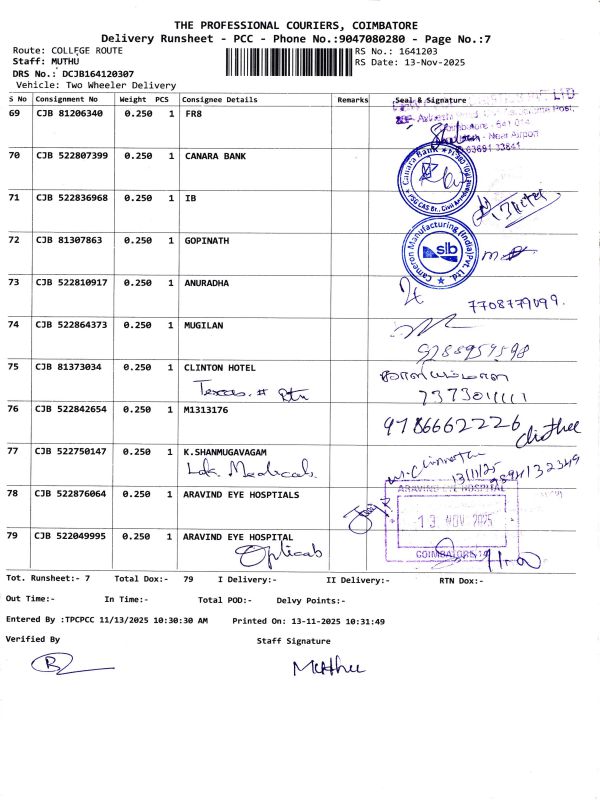 THE PROFESSIONAL COURIERS, COIMBATORE
Delivery Runsheet - PCC - Phone No.:9047080280 - Page No.:7
Route: COLLEGE ROUTE
RS No.: 1641203
Staff: MUTHU
RS Date: 13-Nov-2025
DRS No.: DCJB164120307
Vehicle: Two Wheeler Delivery
S No Consignment No Weight PCS Consignee Details Remarks Seal & Signature
69 CJB 81206340 0.250 1 FR8
Near Airport
70 CJB 522807399 0.250 1 CANARA BANK
Canara Bank
71 CJB 522836968 0.250 1 IB
72 CJB 81307863 0.250 1 GOPINATH
Cameron Manufacturing (India) Pvt. Ltd.
slb
73 CJB 522810917 0.250 1 ANURADHA
7708779099.
74 CJB 522864373 0.250 1 MUGILAN
9288959598
75 CJB 81373034 0.250 1 CLINTON HOTEL
7373011111
76 CJB 522842654 0.250 1 M1313176
9786662226
77 CJB 522750147 0.250 1 K.SHANMUGAVAGAM
13/11/25
9894132349
78 CJB 522876064 0.250 1 ARAVIND EYE HOSPTIALS
ARAVIND EYE HOSPITAL
13 NOV 2025
79 CJB 522049995 0.250 1 ARAVIND EYE HOSPITAL
Opticals
Tot. Runsheet:- 7 Total Dox:- 79 I Delivery:- II Delivery:- RTN Dox:-
Out Time:- In Time:- Total POD:- Delvy Points:-
Entered By :TPCPCC 11/13/2025 10:30:30 AM Printed On: 13-11-2025 10:31:49
Verified By Staff Signature